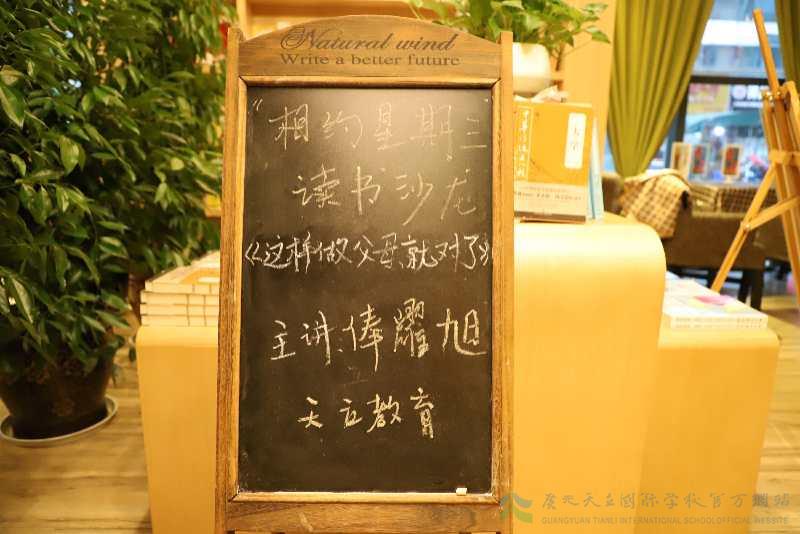 Natural wind
Write a better future
"相约星期三
读书沙龙
《这样做父母,就对了》
主讲:俸躍旭
天立教育
大学
广元天立国际学校官方网站
GUANGYUAN TIANLI INTERNATIONAL SCHOOL OFFICIAL WEBSITE